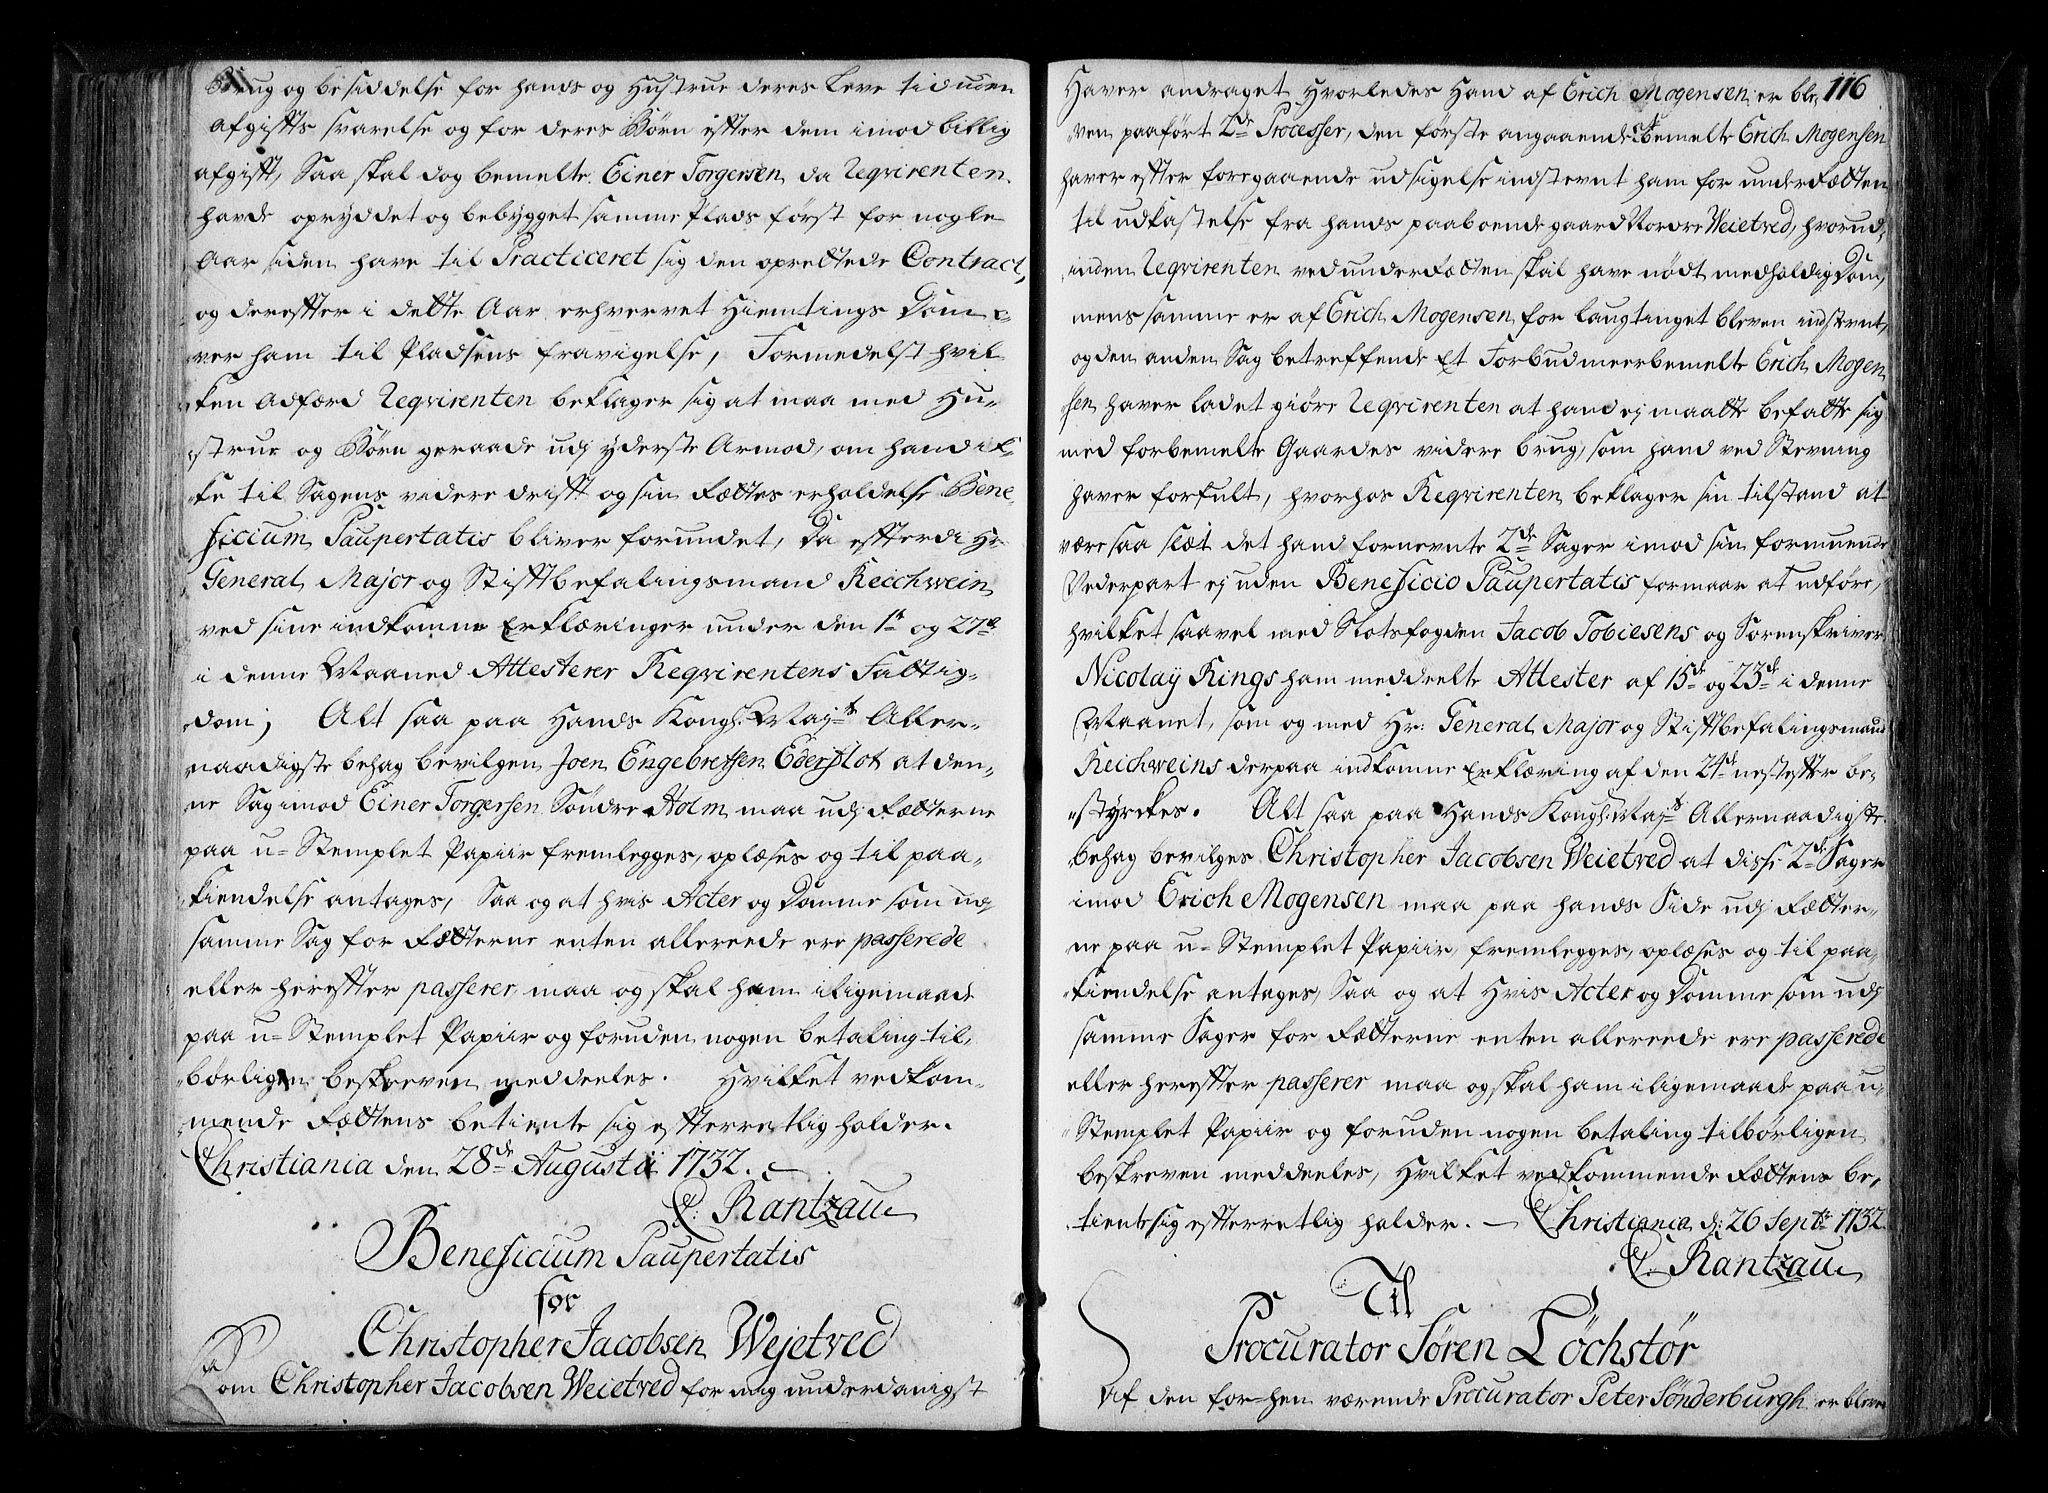 Brug og besiddelse for hands og Hustrue deres Leve tid uden
afgiffts svarelse og for deres Børn effter dem imod billig
afgifft, Saa skal dog bemelte Einer Torgersen da Reqvirenten
havde opryddet og bebygget samme Plads først for nogle
Aar siden have til Practiceret sig den oprettede Contract,
og dereffter i dette Aar erhvervet Hiemtings Dom o-
ver ham til Pladsens fravigelse, Formedelst hvil
ken Adfærd Reqvirenten beklager sig at maa med Hu-
strue og Børn geraade udj yderste Armod, om hand ik-
ke til Sagens videre drifft og sin Rættes erholdelse Bene-
ficium Paupertatis bliver forundet, Da effterdi Hr.
General Major og Stifftbefalingsmand Reichwein
ved sine indkomne Erklæringer under den 1te og 27de
i denne Maaned Attesterer Reqvirentens Fattig-
dom; Alt saa paa Hands Kongl. Mayts Aller-
naadigste behag bevilgen Joen Engebretsen Ederslot at den-
ne Sag imod Einer Torgersen Søndre Holm maa udj Rætterne
paa u- Stemplet Papiir fremlegges, oplæses og til paa-
kiendelse antages, Saa og at hvis Acter og Domme som udj
samme Sag for Rætterne enten allereede ere passerede
eller hereffter passerer, maa og skal ham iligemaade
paa u- Stemplet Papiir og foruden nogen betaling til-
børligen beskreven meddeeles. Hvilket vedkom-
mende Rættens betiente sig effterretlig holder.
Christiania den 28de Augusti 1732.
C: Rantzau
Beneficium Paupertatis
for
Christopher Jacobsen Wejetved
Som Christopher Jacobsen Weietved for mig underdanigst
116
Haver andraget Hvorledes Hand af Erich Mogensen er ble-
ven paaført 2de Processer, den første angaaende at bemelte Erich Mogensen
haver effter foregaaende udsigelse indstevnt ham for underRætten
til udkastelse fra hands paaboende gaard Nordre Weietved, hvorud-
inden Reqvirenten ved underRætten skal have nødt medholdig Dom,
mens samme er af Erich Mogensen for laugtinget bleven indstevnt,
og den anden Sag betreffende Et Forbud meerbemelte Erich Mogen
sen haver ladet giøre Reqvirenten at hand ej maatte befatte sig
med forbemelte Gaardes videre brug, som hand ved Stevning
haver forfult, hvorhos Reqvirenten beklager sin tilstand at
være saa slæt det hand fornevnte 2de Sager imod sin formuende
Vederpart ej uden Beneficio Paupertatis formaar at udføre,
hvilket saavel med Slotsfogden Jacob Tobiesens og Sorenskriver
Nicolaÿ Rings ham meddeelte Attester af 15de og 23de i denne
Maanet, som og med Hr: General Major og Stifftbefalingsmand
Reichweins derpaa indkomne Erklæring af den 24de nesteffter be-
styrckes. Alt saa paa Hands Kongl. Mayts Allernaadigste
behag bevilges Christopher Jacobsen Weietved at disse 2de Sager
imod Erich Mogensen maa paa hands Side udj Rætter-
ne paa u- Stemplet Papiir fremlegges, oplæses og til paa-
kiendelse antages, Saa og at Hvis Acter og Domme som udj
samme Sager for Rætterne enten allereede ere passerede
eller hereffter passerer maa og skal ham iligemaade paa u-
Stemplet Papiir og foruden nogen betaling tilbørligen
beskreven meddeeles, Hvilket vedkommende Rættens be-
tiente sig effterretlig holder. Christiania d: 26 Septr 1732.
C: Rantzau
Til
Procurator Søren Löchstør
Af den for-hen værende Procurator Peter Sønderburgh er bleven